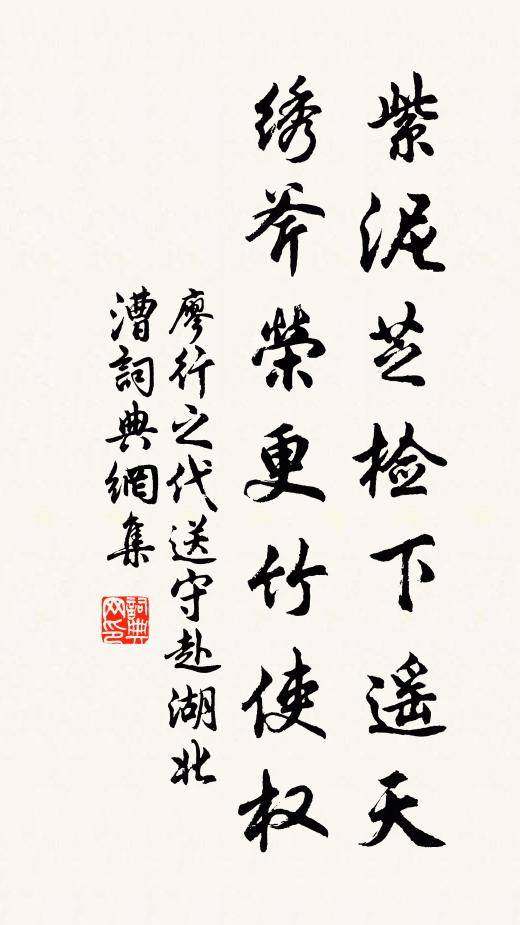 紫泥芝检下遥天
绣斧荣更竹使权
廖行之代送守赴湖北
漕詞典網集
詞典网印